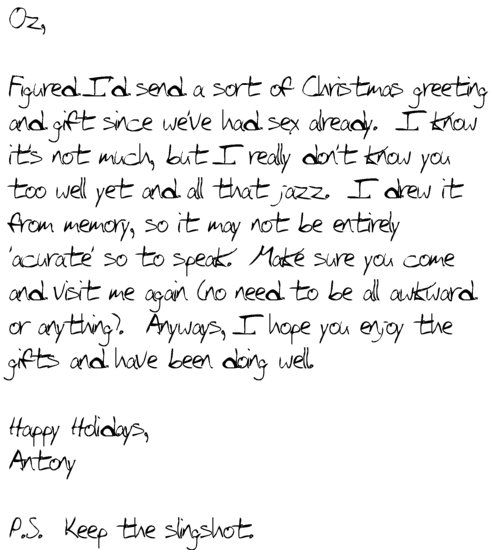 Oz,
Figured I'd send a sort of Christmas greeting
and gift since we've had sex already. I know
it's not much, but I really don't know you
too well yet and all that jazz. I drew it
from memory, so it may not be entirely
'acurate' so to speak. Make sure you come
and visit me again (no need to be all awkward
or anything). Anyways, I hope you enjoy the
gifts and have been doing well.
Happy Holidays,
Antony
P.S. Keep the slingshot.